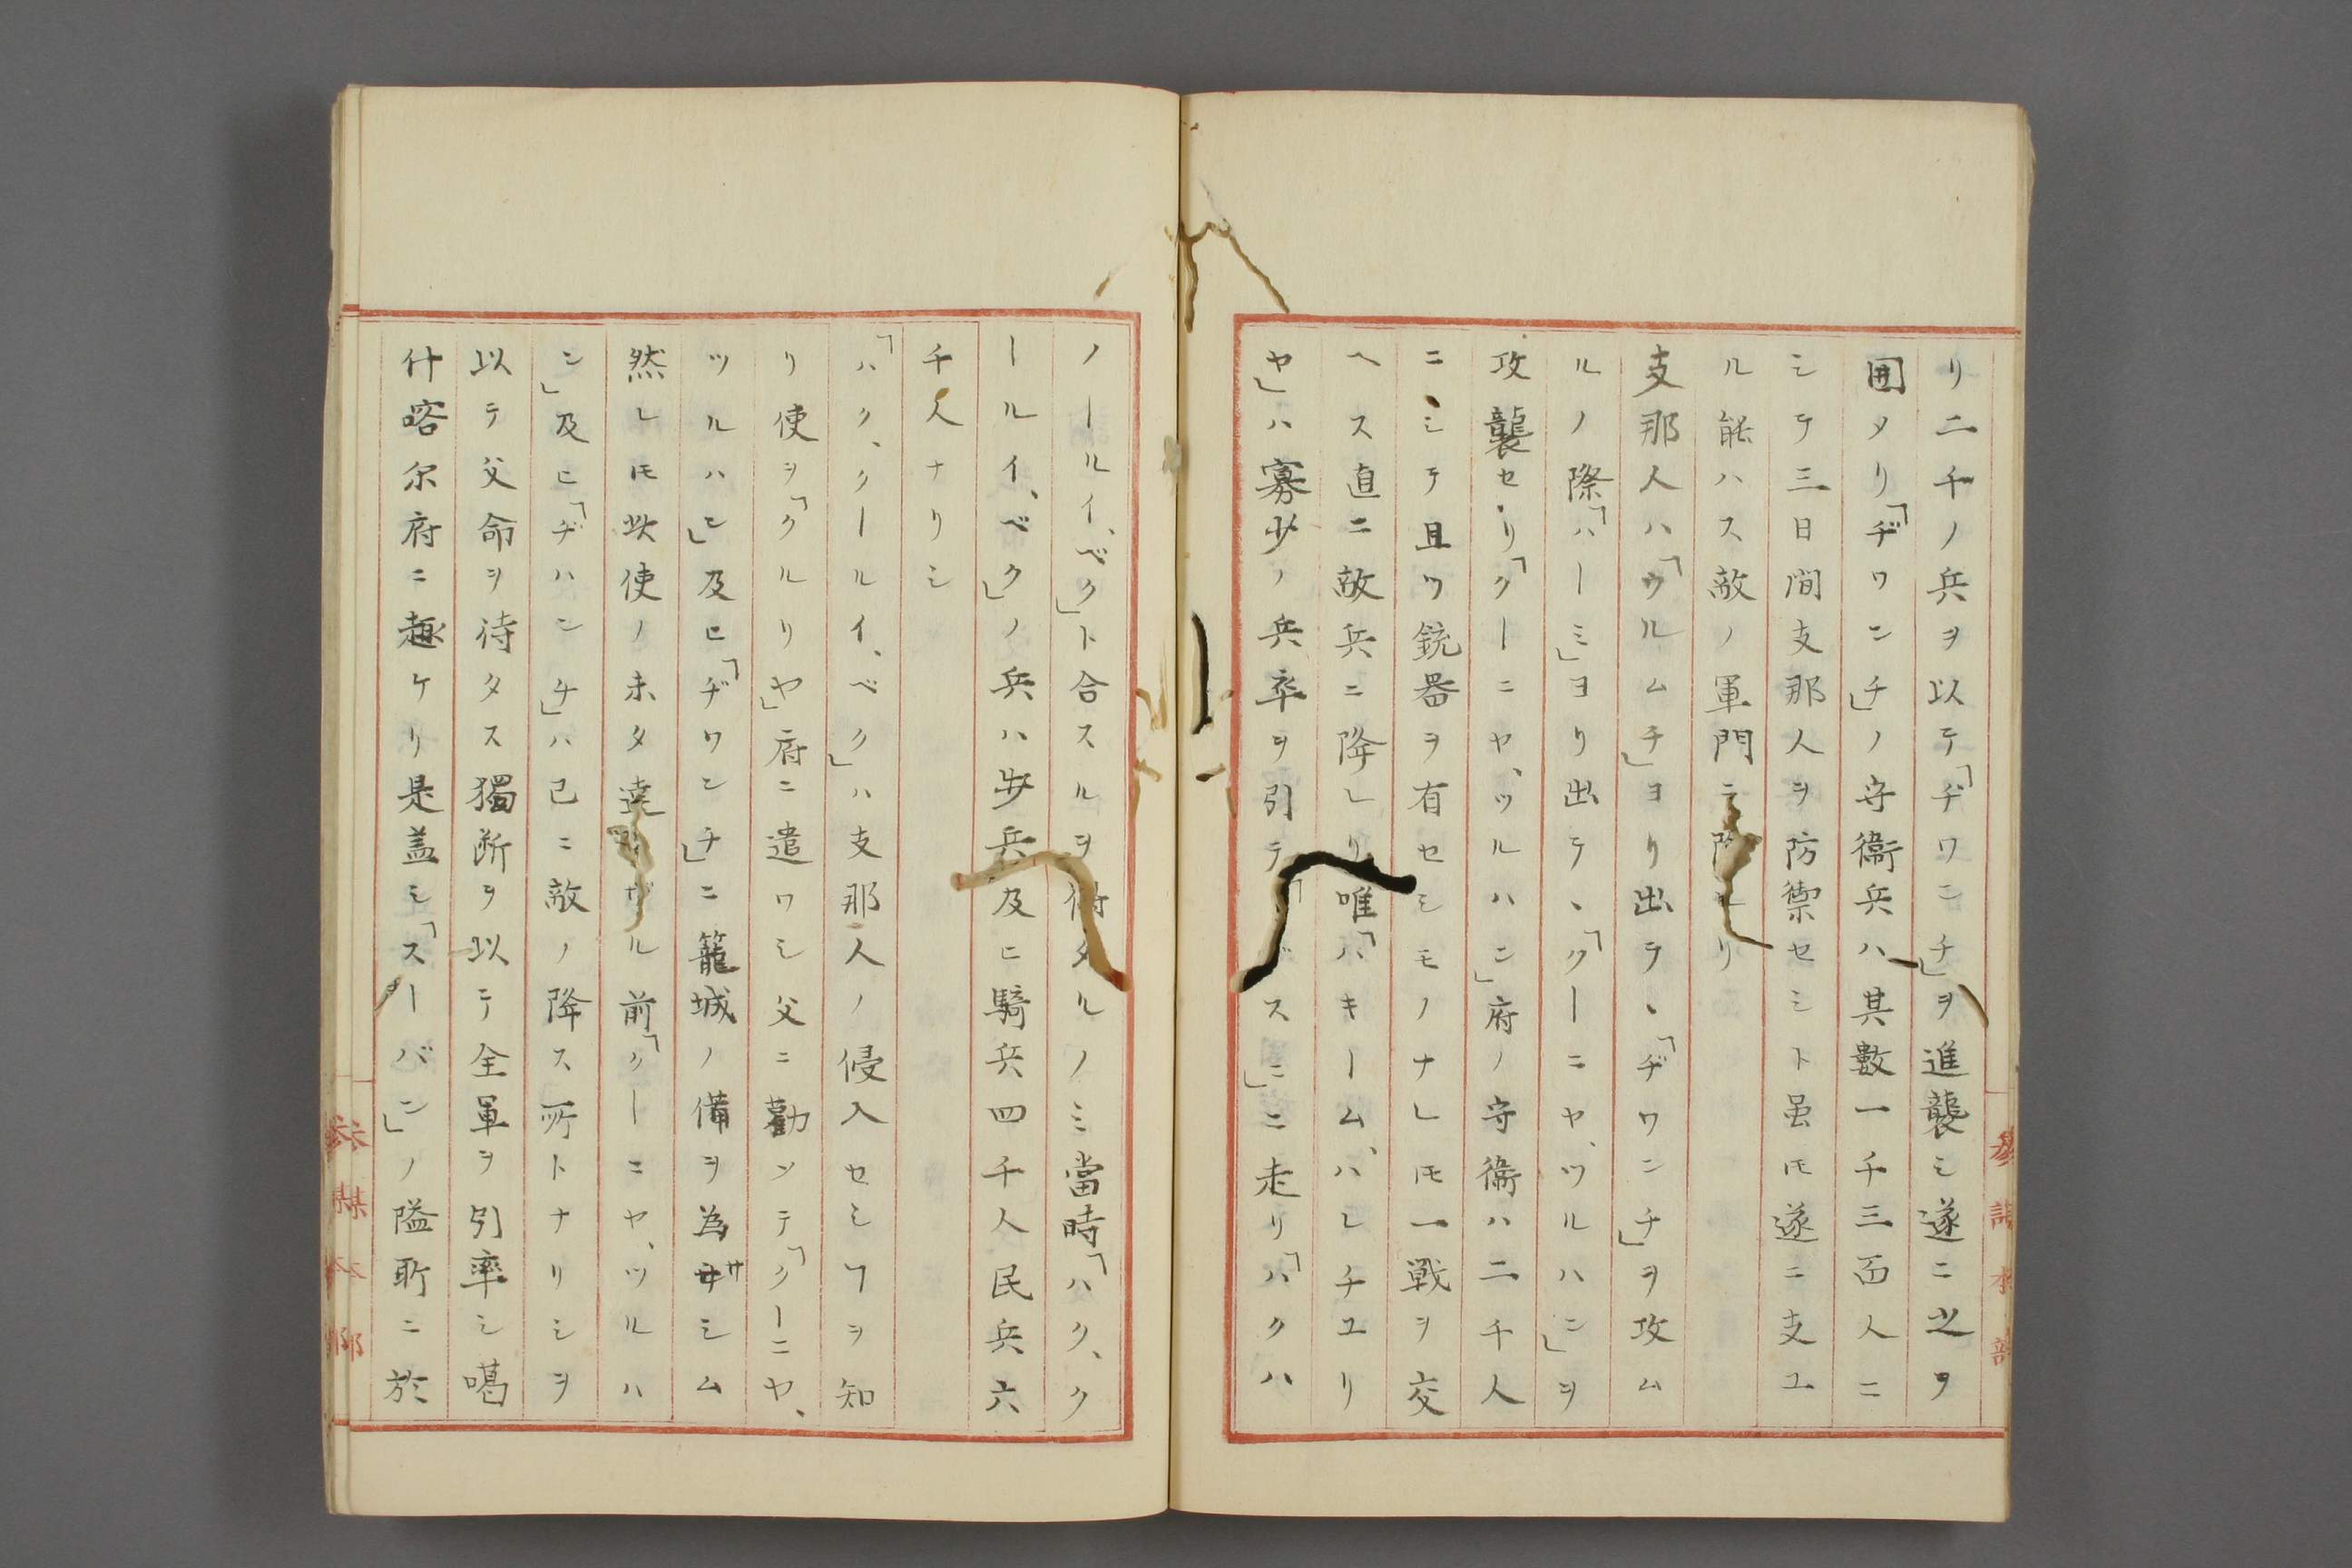 リ二千ノ兵ヲ以テ「ヂワンチ」ヲ進襲シ遂ニ之ヲ
囲メリ「ヂワンチ」ノ守衞兵ハ其數一千三百人ニ
シテ三日間支那人ヲ防禦セシト虽𪜈遂ニ支ユ
ル能ハス敵ノ軍門ニ降セリ
支那人ハ「ウルムチ」ヨリ出テ、「ヂワンチ」ヲ攻ム
ルノ際「ハーミ」ヨリ出テ、「クーニヤ、ツルハン」ヲ
攻襲セリ「クーニヤ、ツルハン」府ノ守衞ハ二千人
ニシテ且ツ銃器ヲ有セシモノナレ𪜈一戦ヲ交
ヘス直ニ敵兵ニ降レリ唯「ハキーム、ハレチユリ
ヤ」ハ寡少ノ兵卒ヲ引テ「バス」ニ走リ「ハクハ
ノールイ、ベク」ト合スルヲ得タルノミ當時「ハク、ク
ールイ、ベク」ノ兵ハ歩兵及ヒ騎兵四千人民兵六
千人ナリシ
「ハク、クールイ、ベク」ハ支那人ノ侵入セシヿヲ知
リ使ヲ「クルリヤ」府ニ遣ワシ父ニ勸ンテ「クーニヤ、
ツルハン」及ヒ「ヂワンチ」ニ籠城ノ備ヲ為サシム
然レ𪜈此使ノ未タ達セザル前「クーニヤ、ツルハ
ン」及ヒ「ヂハンチ」ハ已ニ敵ノ降ス所トナリシヲ
以テ父命ヲ待タス獨断ヲ以テ全軍ヲ引率シ噶
什喀尔府ニ趣ケリ是盖シ「スーバン」ノ隘所ニ於
參謀本部
參謀本部